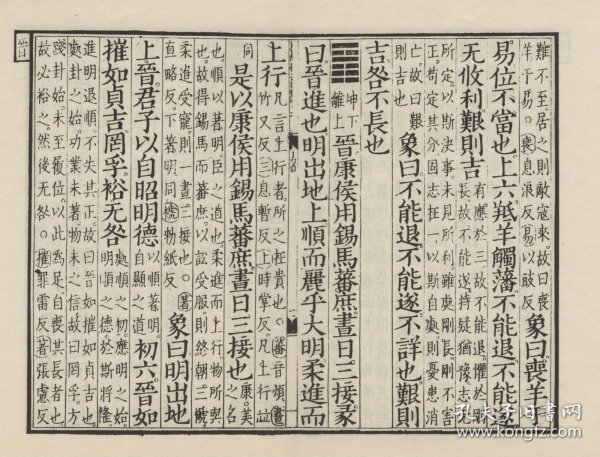 難不至居之則敵寇來故曰喪
羊于易。喪息浪反易以豉反
象曰喪羊于
易位不當也上六羝羊觸藩不能退不能遂
无攸利艱則吉
有應於三故不能退懼於剛
長故不能遂持疑猶豫志无
所定以斯決事未見所利雖處剛長剛不害
正苟定其分固志在一以斯自處則憂患消
亡故曰艱
則吉也
象曰不能退不能遂不詳也艱則
吉咎不長也
䷢
坤下
離上
晉康侯用錫馬蕃庶晝日三接彖
曰晉進也明出地上順而麗乎大明柔進而
上行
凡言上行者所之在貴也。蕃音煩晝
竹又反三息暫反上時掌反凡上行並
同
是以康侯用錫馬蕃庶晝日三接也
康美
之名
也順以著明臣之道也柔進而上行物所與
也故得錫馬而蕃庶以訟受服則終朝三褫
柔進受寵則一晝三接也。著
直略反下著明同褫物紙反
象曰明出地
上晉君子以自昭明德
以順著明
自顯之道
初六晉如
摧如貞吉罔孚裕无咎
處順之初應明之始
明順之德於斯將隆
進明退順不失其正故曰晉如摧如貞吉也
處卦之始功業未著物未之信故曰罔孚方
踐卦始未至履位以此為足自喪其長者也
故必裕之然後无咎。摧罪雷反著張慮反
晉
孔夫子旧书网
www.kongfz.com